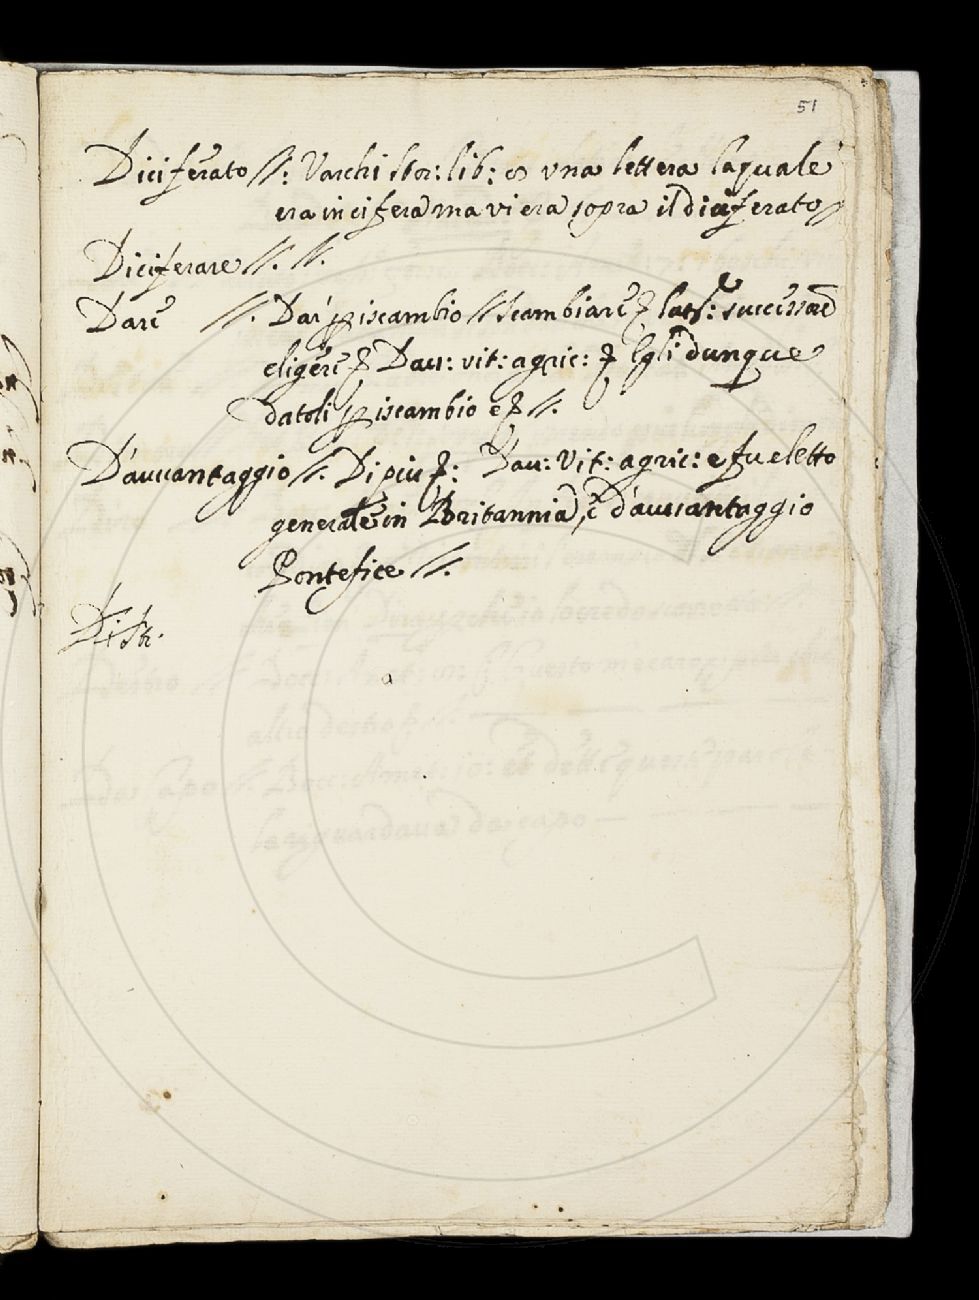 51
Diciferato //: Varchi stor: lib: 8 vna lettera laquale
era in cifera ma vi era sopra il diciferato //
Diciferare //. //.
Dare //. Dar p iscambio // scambiare latt: successore
eligere Dau: vit: agric: Egli dunque
datoli p iscambio e //.
D'auuantaggio //. Di piu : Dau: Vit: agric: e fu eletto
generale in Britannia, e d'auuantaggio
Pontefice //.